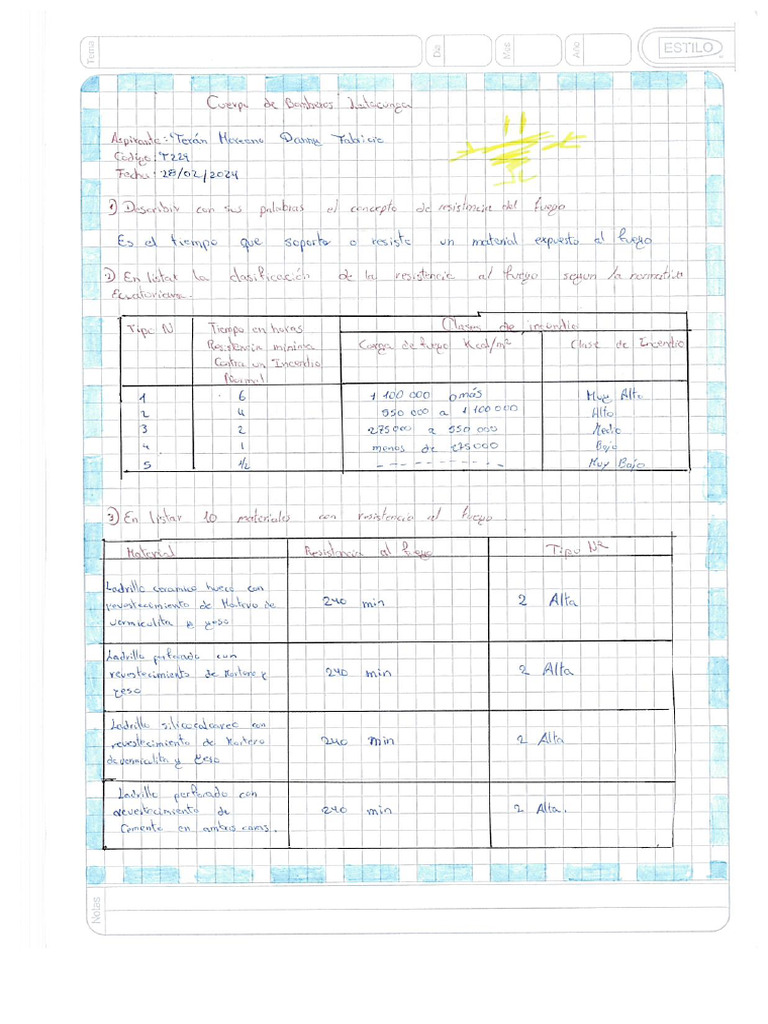 Tema
Dia
Mes
Año
ESTILO
Cuerpo de Bomberos Latacunga
Aspirante: Terán Moreno Danny Fabricio
Codigo: T229
Fecha: 28/02/2024
1) Describir con sus palabras el concepto de resistencia del fuego
Es el tiempo que soporta o resiste un material expuesto al fuego
2) En listar la clasificación de la resistencia al fuego segun la normativa
Ecuatoriana.
Tipo N
Tiempo en horas
Resistencia minima
Contra un Incendio
Normal
Clases de incendio
Carga de fuego Kcal/m²
Clase de Incendio
1 6 1 100 000 o más Muy Alto
2 4 550 000 a 1 100 000 Alto
3 2 275 000 a 550 000 Medio
4 1 menos de 275000 Bajo
5 1/2 - - - - - - - - - - Muy Bajo
3) En listar 10 materiales con resistencia al fuego
Material Resistencia al fuego Tipo Nº
Ladrillo ceramico hueco con
revestecimiento de Mortero de
vermiculita y yeso
240 min 2 Alta
Ladrillo perforado con
revestecimiento de Mortero y
yeso
240 min 2 Alta
Ladrillo silicocalcareo con
revestecimiento de Mortero
de vermiculita y yeso
240 min 2 Alta
Ladrillo perforado con
revestecimiento de
Cemento en ambas caras.
240 min 2 Alta.
Notas